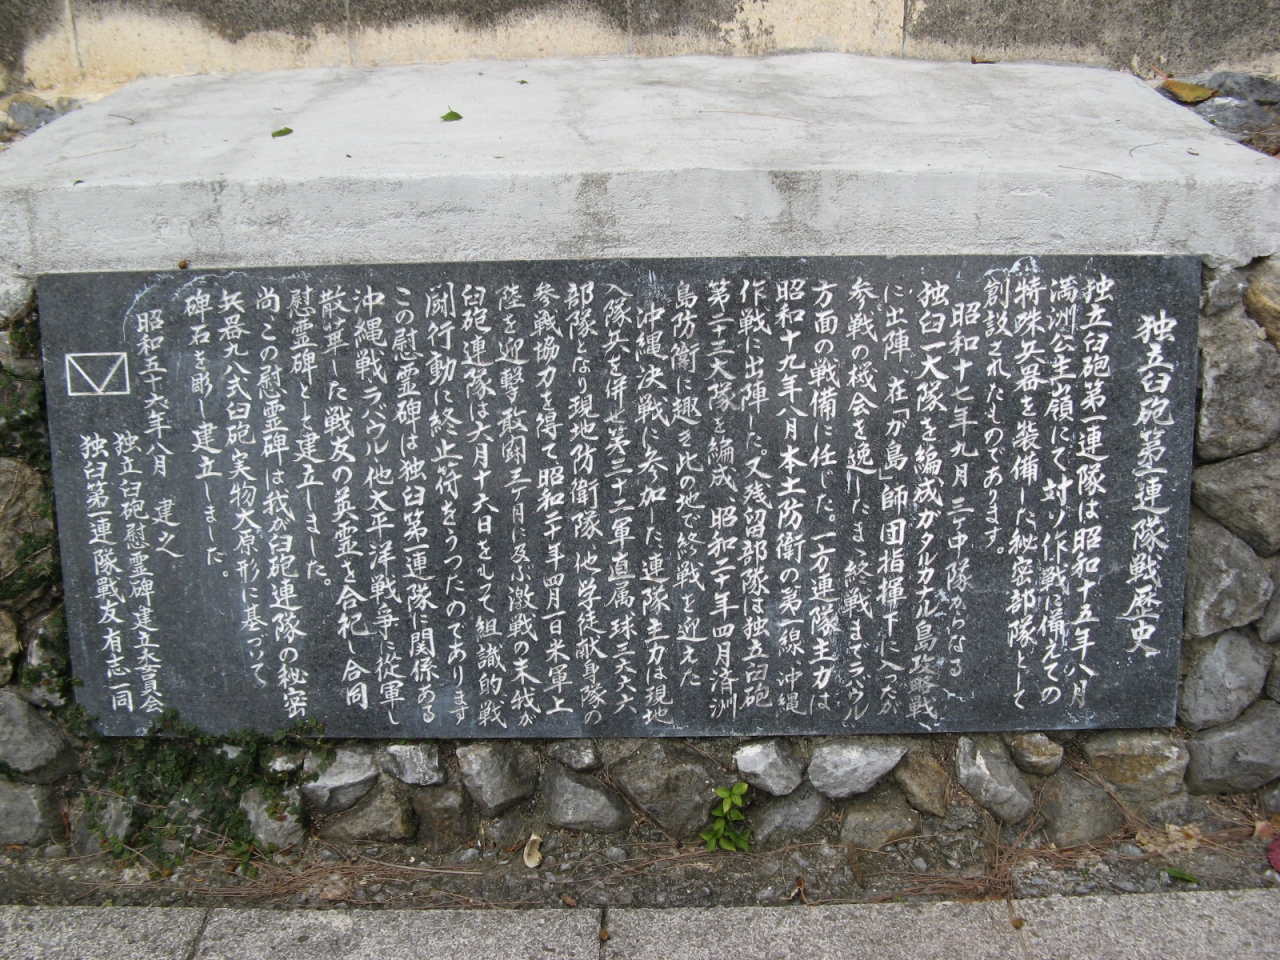 独立臼砲第一連隊戦歴史
独立臼砲第一連隊は昭和十五年八月
満洲公主嶺にて対ソ作戦に備えての
特殊兵器を装備した秘密部隊として
創設されたものであります。
昭和十七年九月 三ケ中隊からなる
独臼一大隊を編成ガタルカナル島攻略戦
に出陣、在「が島」師団指揮下に入ったが
参戦の機会を逸したまゝ終戦までラバウル
方面の戦備に任じた。一方連隊主力は
昭和十九年八月本土防衛の第一線、沖縄
作戦に出陣した。又残留部隊は独立臼砲
第二十三大隊を編成、昭和二十年四月済洲
島防衛に趣き此の地で終戦を迎えた
沖縄決戦に参加した連隊主力は現地
入隊兵を併せ第三十二軍直属球三六六六
部隊となり現地防衛隊、他学徒献身隊の
参戦協力を得て昭和二十年四月一日米軍上
陸を迎撃敢闘三ケ月に及ぶ激戦の末我が
臼砲連隊は六月十六日をもって組識的戦
闘行動に終止符をうったのであります
この慰霊碑は独臼第一連隊に関係ある
沖縄戦ラバウル他太平洋戦争に従軍し
散華した戦友の英霊を合祀し合同
慰霊碑として建立しました。
尚この慰霊碑は我が臼砲連隊の秘密
兵器九八式臼砲実物大原形に基づいて
碑石を彫し建立しました。
昭和五十六年八月 建之
独立臼砲慰霊碑建立委員会
独臼第一連隊戦友有志一同